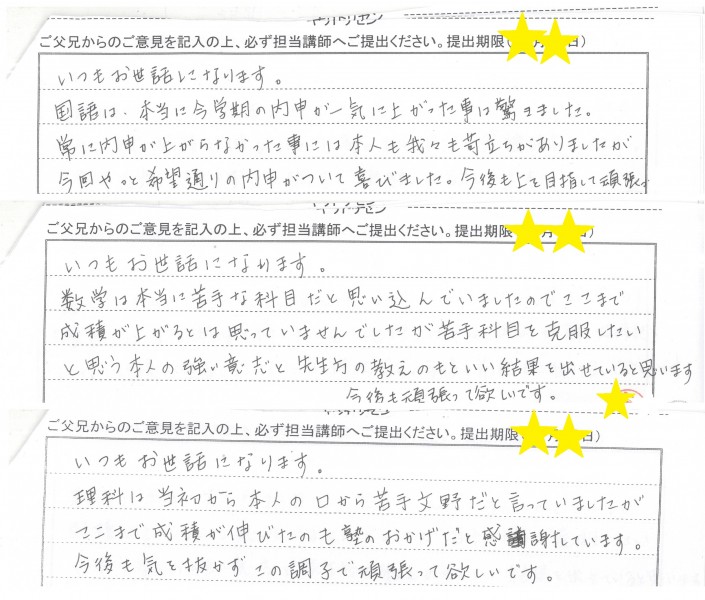 ご父兄からのご意見を記入の上、必ず担当講師へご提出ください。提出期限(
いつもお世話になります。
国語は、本当に今学期の内申が一気に上がった事は驚きました。
常に内申が上がらなかった事には本人も我々も苛立ちがありましたが
今回やっと希望通りの内申がついて喜びました。今後も上を目指して頑張
ご父兄からのご意見を記入の上、必ず担当講師へご提出ください。提出期限
いつもお世話になります。
数学は本当に苦手な科目だと思い込んでいましたのでここまで
成積が上がるとは思っていませんでしたが苦手科目を克服したい
と思う本人の強い意志と先生方の教えのもといい結果を出せていると思います
今後も頑張って欲しいです。
ご父兄からのご意見を記入の上、必ず担当講師へご提出ください。提出期限(日)
いつもお世話になります。
理科は当初から本人の口から苦手文野だと言っていましたが
ここまで成積が伸びたのも塾のおかげだと感謝しています。
今後も気を抜かずこの調子で頑張って欲しいです。